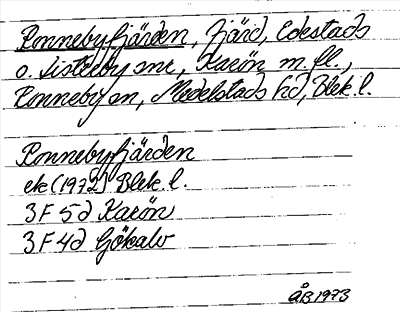 Ronnebyfjärden, fjärd, Edestads
o. Listerby snr, Karön m. fl.,
Ronneby sn, Medelstads hd, Blek. l.
Ronnebyfjärden
ek (1972) Blek. l.
3F 5d Karön
3F 4d Gökalv
ÅB 1973